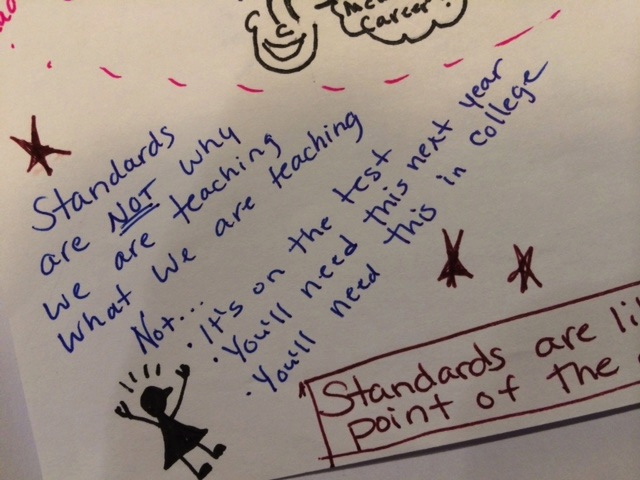 Career!
Standards
are NOT why
we are teaching
what we are teaching
Not...
· It's on the test
· You'll need this next year
· You'll need this in college
Standards are
point of the